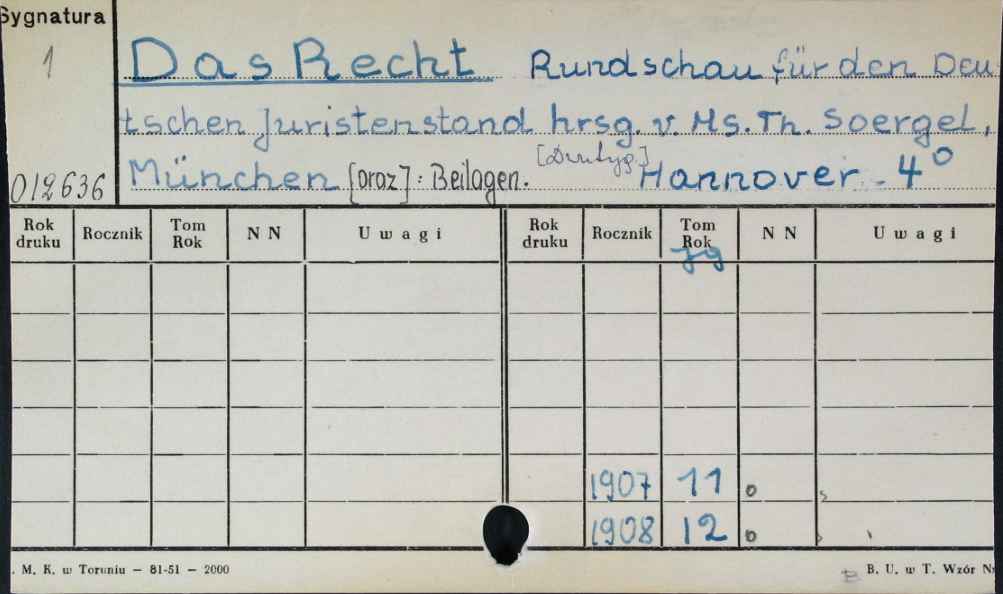 Sygnatura
1
012636
Das Recht Rundschau für den Deu-
tschen Juristenstand hrsg. v. Hs. Th. Soergel,
München [oraz] : Beilagen. Hannover - 4°
Rok druku Rocznik Tom Rok N N Uwagi Rok druku Rocznik Tom Rok N N Uwagi
jg
1907 11 o
1908 12 o
. M. K. w Toruniu — 81-51 — 2000
B. U. w T. Wzór N